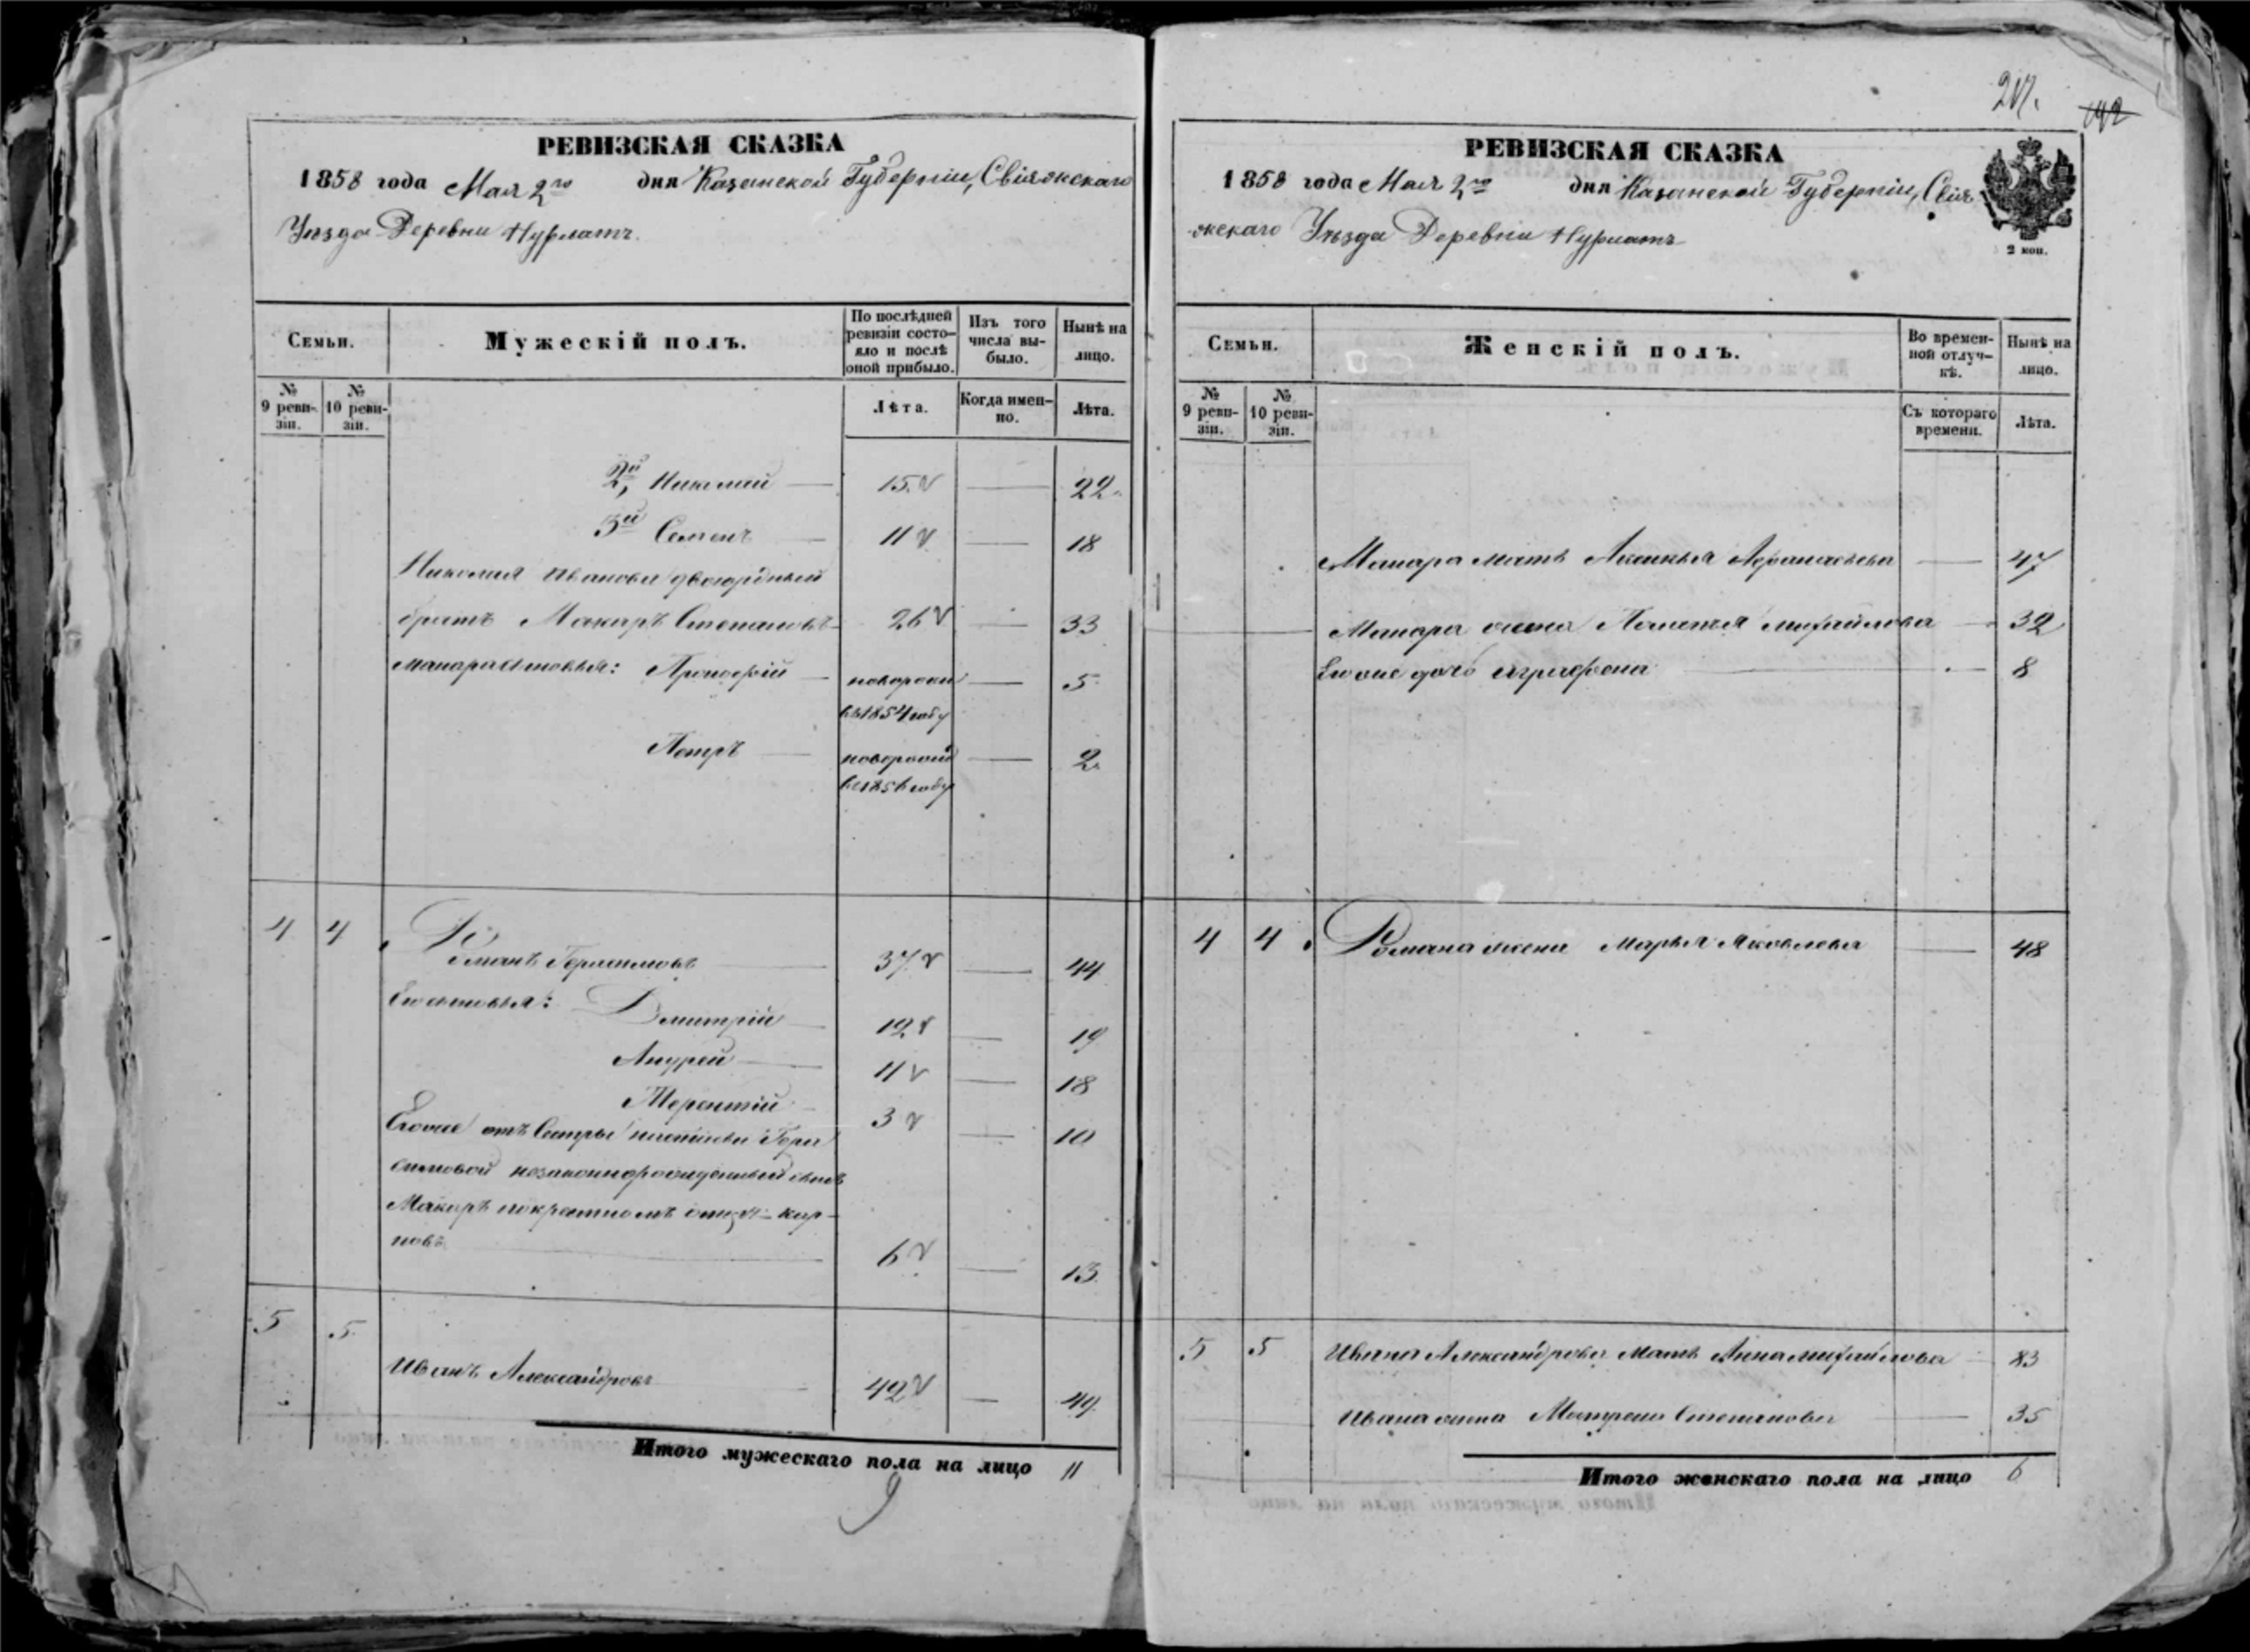 РЕВИЗСКАЯ СКАЗКА
1858 года Мая 2го дня Казанской Губерніи, Свіяжскаго
Уѣзда Деревни Нурлатъ.
Семьи.
Мужескій полъ.
По послѣдней ревизіи состояло и послѣ оной прибыло.
Изъ того числа выбыло.
Нынѣ на лицо.
№ 9 ревизіи.
№ 10 ревизіи.
Лѣта.
Когда именно.
Лѣта.
2й, Николай — 15 — 22
3й Семенъ — 11 — 18
Николая Иванова двоюродный
братъ Макаръ Степановъ 26 — 33
Макара сыновья: Прокофій — новорожд — 5
въ 1854 году
Петръ — новорожд — 2
въ 1856 году
4 4 Романъ Герасимовъ — 37 — 44
Его сыновья: Дмитрій — 12 — 19
Андрей — 11 — 18
Терентій — 3 — 10
Егоже отъ Сестры Гера
симовой незаконнорожденный сынъ
Макаръ по крестномъ отцу Кар-
повъ — 6 — 13
5 5 Иванъ Александровъ — 42 — 49
Итого мужескаго пола на лицо 11
9
217.
РЕВИЗСКАЯ СКАЗКА
1858 года Мая 2го дня Казанской Губерніи, Свія
жскаго Уѣзда Деревни Нурлатъ
2 коп.
Семьи.
Женскій полъ.
Во временной отлучкѣ.
Нынѣ на лицо.
№ 9 ревизіи.
№ 10 ревизіи.
Съ котораго времени.
Лѣта.
Макара мать Аксинья Афанасьева — 47
Макара жена Михайлова — 32
Егоже дочь Аграфена — 8
4 4 Романа жена Марья Яковлева — 48
5 5 Ивана Александрова мать Анна Михайлова — 83
Ивана жена Матрена Степанова — 35
Итого женскаго пола на лицо 6